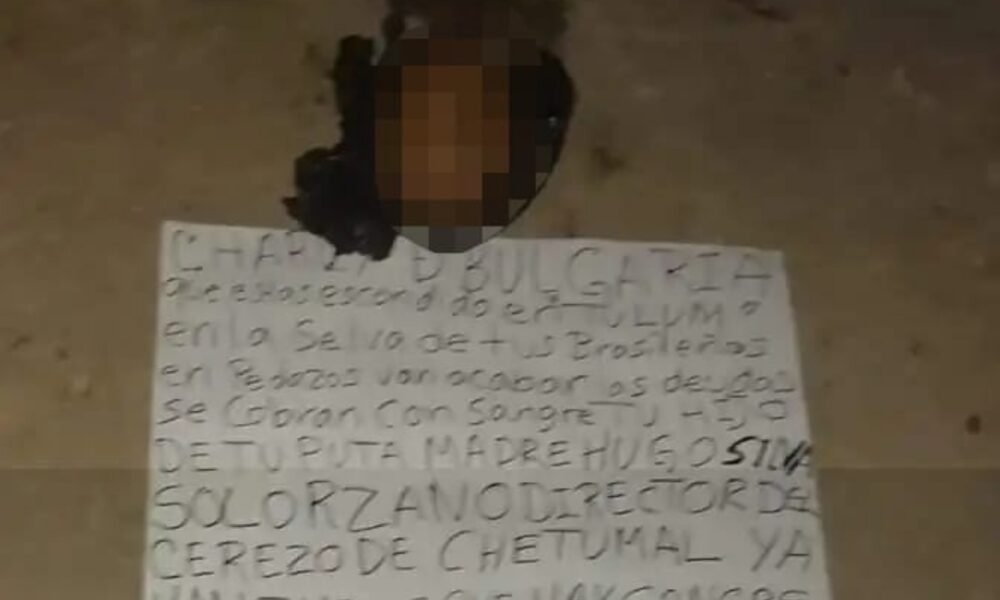 CHARLY D BULGARIA
que estas escondido en TULUM o
en la Selva de tus Brasileñas
en Pedazos van acabar las deudas
se Cobran Con Sangre TU HIJO
DE TU PUTA MADRE HUGO SILVA
SOLORZANO DIRECTOR DEL
CEREZO DE CHETUMAL YA